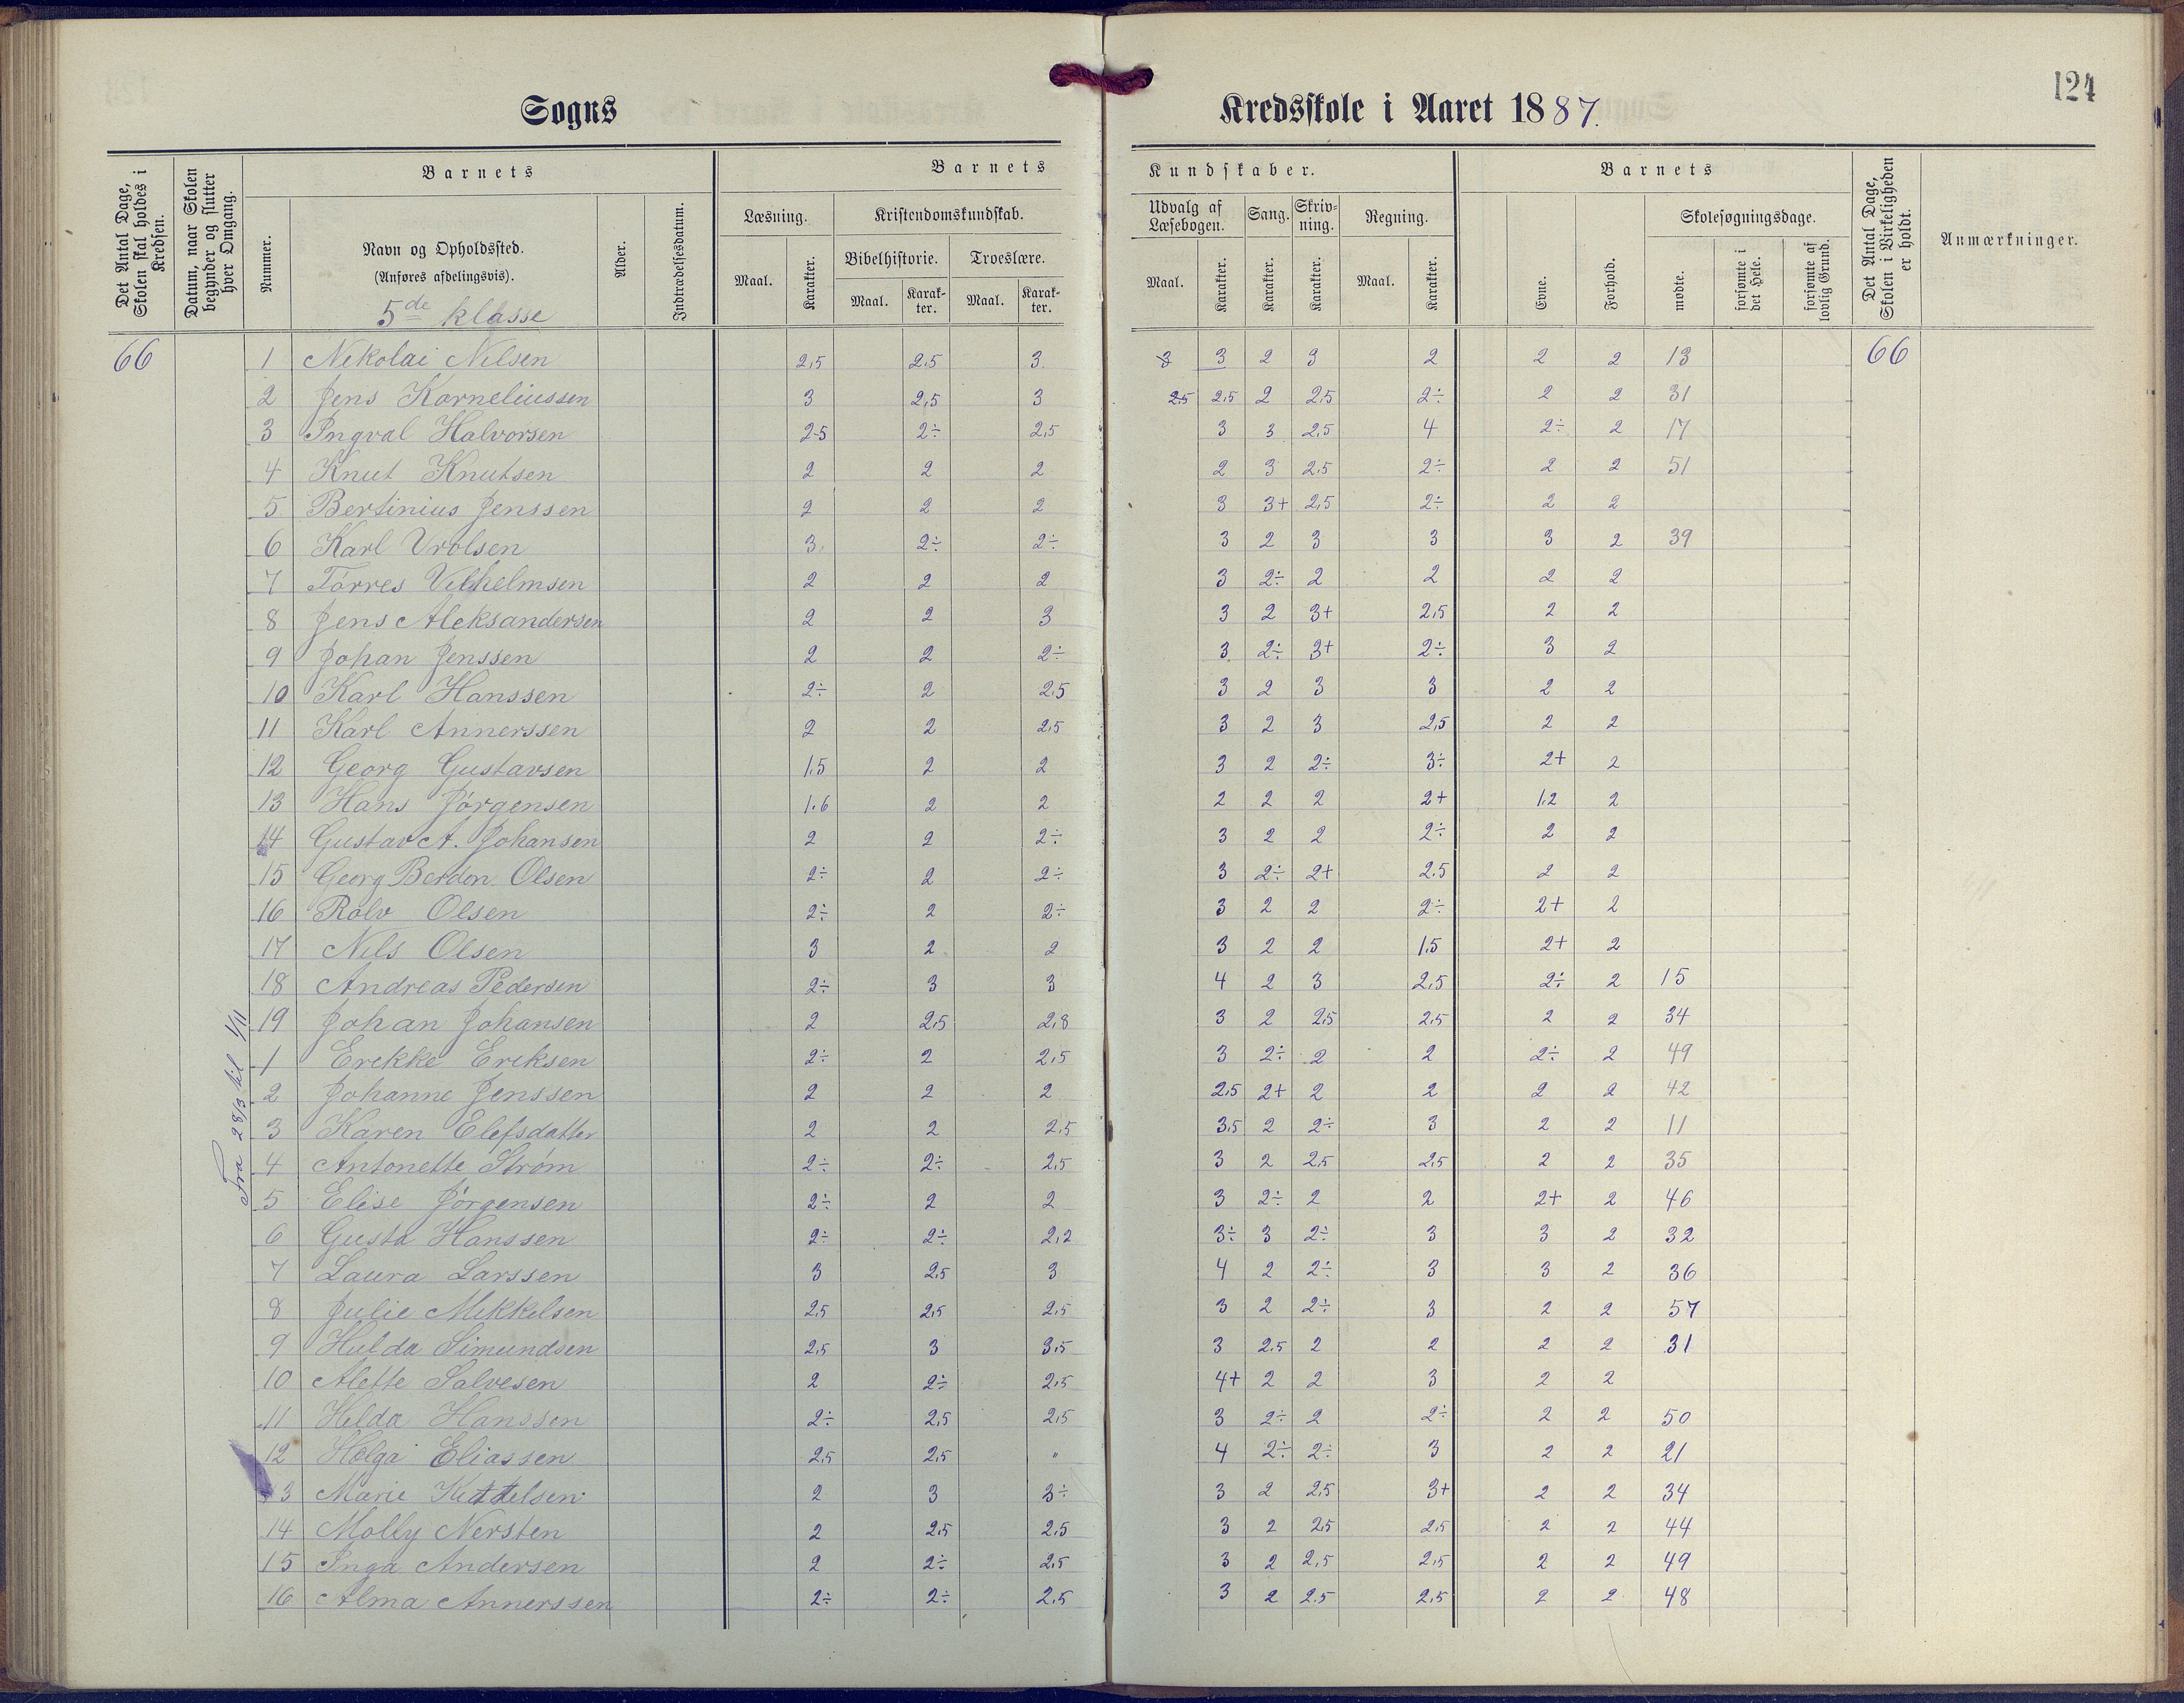 124
Sogns Kredsskole i Aaret 1887.
Det Antal Dage, Skolen skal holdes i Kredsen.
Datum, naar Skolen begynder og slutter hver Omgang.
Barnets
Nummer.
Navn og Opholdssted.
(Anføres afdelingsvis).
5de klasse
Alder.
Indtrædelsesdatum.
Barnets Kundskaber.
Læsning.
Maal. Karakter.
Kristendomskundskab.
Bibelhistorie. Troeslære.
Maal. Karakter. Maal. Karakter.
Udvalg af Læsebogen. Sang. Skrivning. Regning.
Maal. Karakter. Karakter. Karakter. Maal. Karakter.
Barnets
Evne. Forhold.
Skolesøgningsdage.
mødte. forsømte i det Hele. forsømte af lovlig Grund.
Det Antal Dage, Skolen i Virkeligheden er holdt.
Anmærkninger.
66 1 Nekolai Nilsen 2,5 2.5 3. 3 3 2 3 2 2 2 13 66
2 Jens Korneliussen 3 2,5 3 2.5 2.5 2 2.5 2÷ 2 2 31
3 Ingval Halvorsen 2-5 2÷ 2,5 3 3 2,5 4 2÷ 2 17
4 Knut Knutsen 2 2 2 2 3 2.5 2÷ 2 2 51
5 Bertinius Jenssen 2 2 2 3 3+ 2,5 2÷ 2 2
6 Karl Vrolsen 3. 2÷ 2÷ 3 2 3 3 3 2 39
7 Tórres Vilhelmsen 2 2 2 3 2÷ 2 2 2 2
8 Jens Aleksandersen 2 2 3 3 2 3+ 2,5 2 2
9 Johan Jenssen 2 2 2÷ 3 2÷ 3+ 2÷ 3 2
10 Karl Hanssen 2÷ 2 2.5 3 2 3 3 2 2
11 Karl Annerssen 2 2 2.5 3 2 3 2,5 2 2
12 Georg Gustavsen 1.5 2 2 3 2 2÷ 3÷ 2+ 2
13 Hans Jórgensen 1.6 2 2 2 2 2 2+ 1.2 2
14 Gustav A. Johansen 2 2 2÷ 3 2 2 2÷ 2 2
15 Georg Berdon Olsen 2÷ 2 2÷ 3 2÷ 2+ 2.5 2 2
16 Rolv Olsen 2÷ 2 2÷ 3 2 2 2÷ 2+ 2
17 Nils Olsen 3 2 2 3 2 2 1.5 2+ 2
18 Andreas Pedersen 2÷ 3 3 4 2 3 2,5 2÷ 2 15
19 Johan Johansen 2 2.5 2,8 3 2 2.5 2.5 2 2 34
Fra 28/3 til 1/11
1 Erekke Eriksen 2÷ 2 2,5 3 2÷ 2 2 2÷ 2 49
2 Johanne Jenssen 2 2 2 2.5 2+ 2 2 2 2 42
3 Karen Elefsdatter 2 2 2.5 3.5 2 2÷ 3 2 2 11
4 Antonette Strøm 2÷ 2÷ 2,5 3 2 2.5 2.5 2 2 35
5 Elise Jörgensen 2÷ 2 2 3 2÷ 2 2 2+ 2 46
6 Gusta Hanssen 2÷ 2÷ 2,2 3÷ 3 2÷ 3 3 2 32
7 Laura Larssen 3 2.5 3 4 2 2÷ 3 3 2 36
8 Julie Mikkelsen 2.5 2.5 2.5 3 2 2÷ 3 2 2 57
9 Hulda Simundsen 2,5 3 3.5 3 2.5 2 2 2 2 31
10 Alette Salvesen 2 2÷ 2.5 4+ 2 2 3 2 2
11 Hilda Hanssen 2÷ 2.5 2.5 3 2÷ 2 2÷ 2 2 50
12 Holga Eliassen 2.5 2.5 " 4 2÷ 2÷ 3 2 2 21
13 Marie Kittelsen 2 3 3÷ 3 2 2.5 3+ 2 2 34
14 Molly Nersten 2 2.5 2.5 3 2 2.5 2.5 2 2 44
15 Inga Andersen 2 2÷ 2.5 3 2 2,5 2,5 2 2 49
16 Alma Annerssen 2÷ 2÷ 2.5 3 2 2.5 2,5 2 2 48